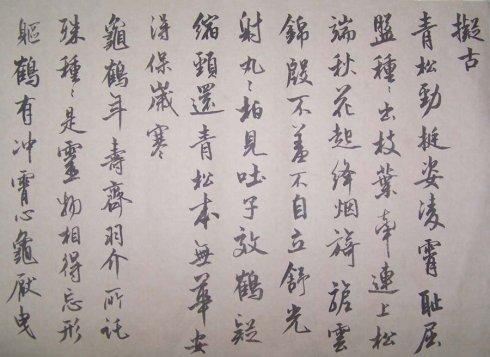 擬古
青松勁挺姿凌霄恥屈
盤種〻出枝葉牽連上松
端秋花起絳烟旖旎雲
錦殷不羞不自立舒光
射丸〻柏見吐子效鶴疑
縮頸還青松本無華安
得保歲寒
龜鶴年壽齊羽介所託
殊種〻是靈物相得忘形
軀鶴有冲霄心龜厭曳